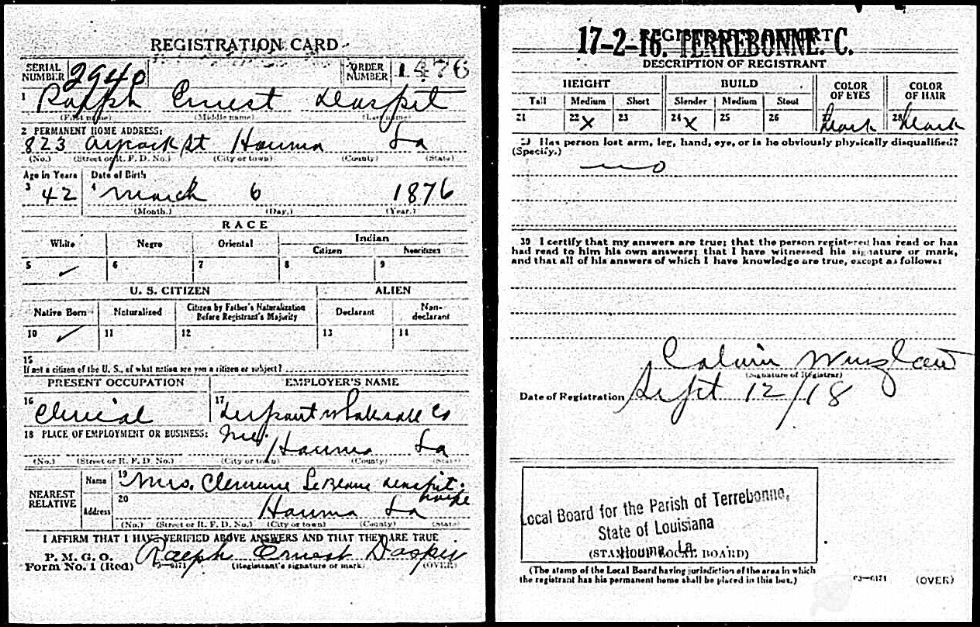 REGISTRATION CARD
SERIAL NUMBER 2940 ORDER NUMBER 1476
1 Ralph Ernest Daspit
(First name) (Middle name) (Last name)
2 PERMANENT HOME ADDRESS:
823 St Houma La
(No.) (Street or R. F. D. No.) (City or town) (County) (State)
Age in Years Date of Birth
3 42 4 March 6 1876
(Month.) (Day.) (Year.)
RACE
White Negro Oriental Indian
Citizen Noncitizen
5 6 7 8 9
U. S. CITIZEN ALIEN
Native Born Naturalized Citizen by Father's Naturalization Before Registrant's Majority Declarant Non-declarant
10 11 12 13 14
15
If not a citizen of the U. S., of what nation are you a citizen or subject?
PRESENT OCCUPATION EMPLOYER'S NAME
16 Clerical 17 Wholesale Co
18 PLACE OF EMPLOYMENT OR BUSINESS:
Houma La
(No.) (Street or R. F. D. No.) (City or town) (County) (State)
NEAREST RELATIVE Name 19 Mrs. LeBlanc Daspit
Address 20 Houma La
(No.) (Street or R. F. D. No.) (City or town) (County) (State)
I AFFIRM THAT I HAVE VERIFIED ABOVE ANSWERS AND THAT THEY ARE TRUE
P. M. G. O.
Form No. 1 (Red) Ralph Ernest Daspit
(Registrant's signature or mark) (OVER)
REGISTRAR'S REPORT
17-2-16. TERREBONNE. C.
DESCRIPTION OF REGISTRANT
HEIGHT BUILD COLOR OF EYES COLOR OF HAIR
Tall Medium Short Slender Medium Stout
21 22 X 23 24 X 25 26 27 28
29 Has person lost arm, leg, hand, eye, or is he obviously physically disqualified?
(Specify.) no
30 I certify that my answers are true; that the person registered has read or has
had read to him his own answers; that I have witnessed his signature or mark,
and that all of his answers of which I have knowledge are true, except as follows:
Calvin Wurzlow
(Signature of Registrar)
Date of Registration Sept 12/18
Local Board for the Parish of Terrebonne,
State of Louisiana
Houma, La.
(STAMP OF LOCAL BOARD)
(The stamp of the Local Board having jurisdiction of the area in which
the registrant has his permanent home shall be placed in this box.)
03—6171 (OVER)